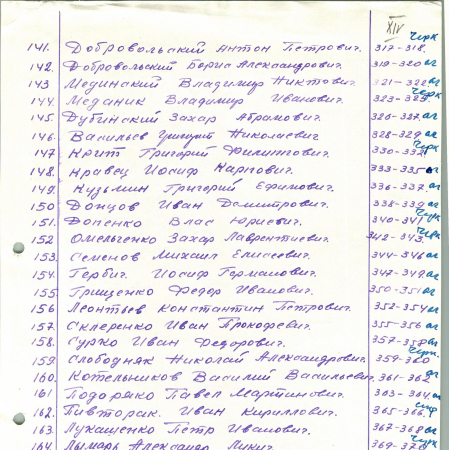 XIV
Черк
141. Добровольский Антон Петрович. 317-318.
142. Добровольский Борис Александрович. 319-320 аг
143 Мединский Владимир Никтович. 321-322 аг
Черк
144. Меданик Владимир Иванович. 323-325
145. Дубинский Захар Абрамович. аг
146. Васильев Николаевич 328-329 аг
Черк
147 Крит Григорий Филиппович. 330-332
148. Кравец Иосиф Карпович. 333-335 аг
149. Кузьмин Григорий Ефимович. 336-337 аг
150 Донцов Иван Дмитрович. 338-339 аг
151. Допенко Влас Юриевич. 340-341
152 Омельченко Захар Лаврентиевич. 342-343
153. Семенов Михаил Елисеевич. 344-346 аг
154. Гербич. Иосиф Германович. 347-349 аг
155. Грищенко Федор Иванович. 350-351 аг
156 Леонтьев Константин Петрович. 352-354 аг
157 Скляренко Иван Прокофевич. 355-356 аг
158. Сурко Иван Федорович. 357-358 аг
159 Слободняк Николай Александрович. 359-360
160. Котельников Василий Васильевич. 361-362 аг
161 Подорако Павел Мартинович. 363-364 аг
162. Пивторак. Иван Кириллович. 365-366
163. Лукашенко Петр Иванович. 367-368 аг
164. Лымарь Александр Лукич. 369-370